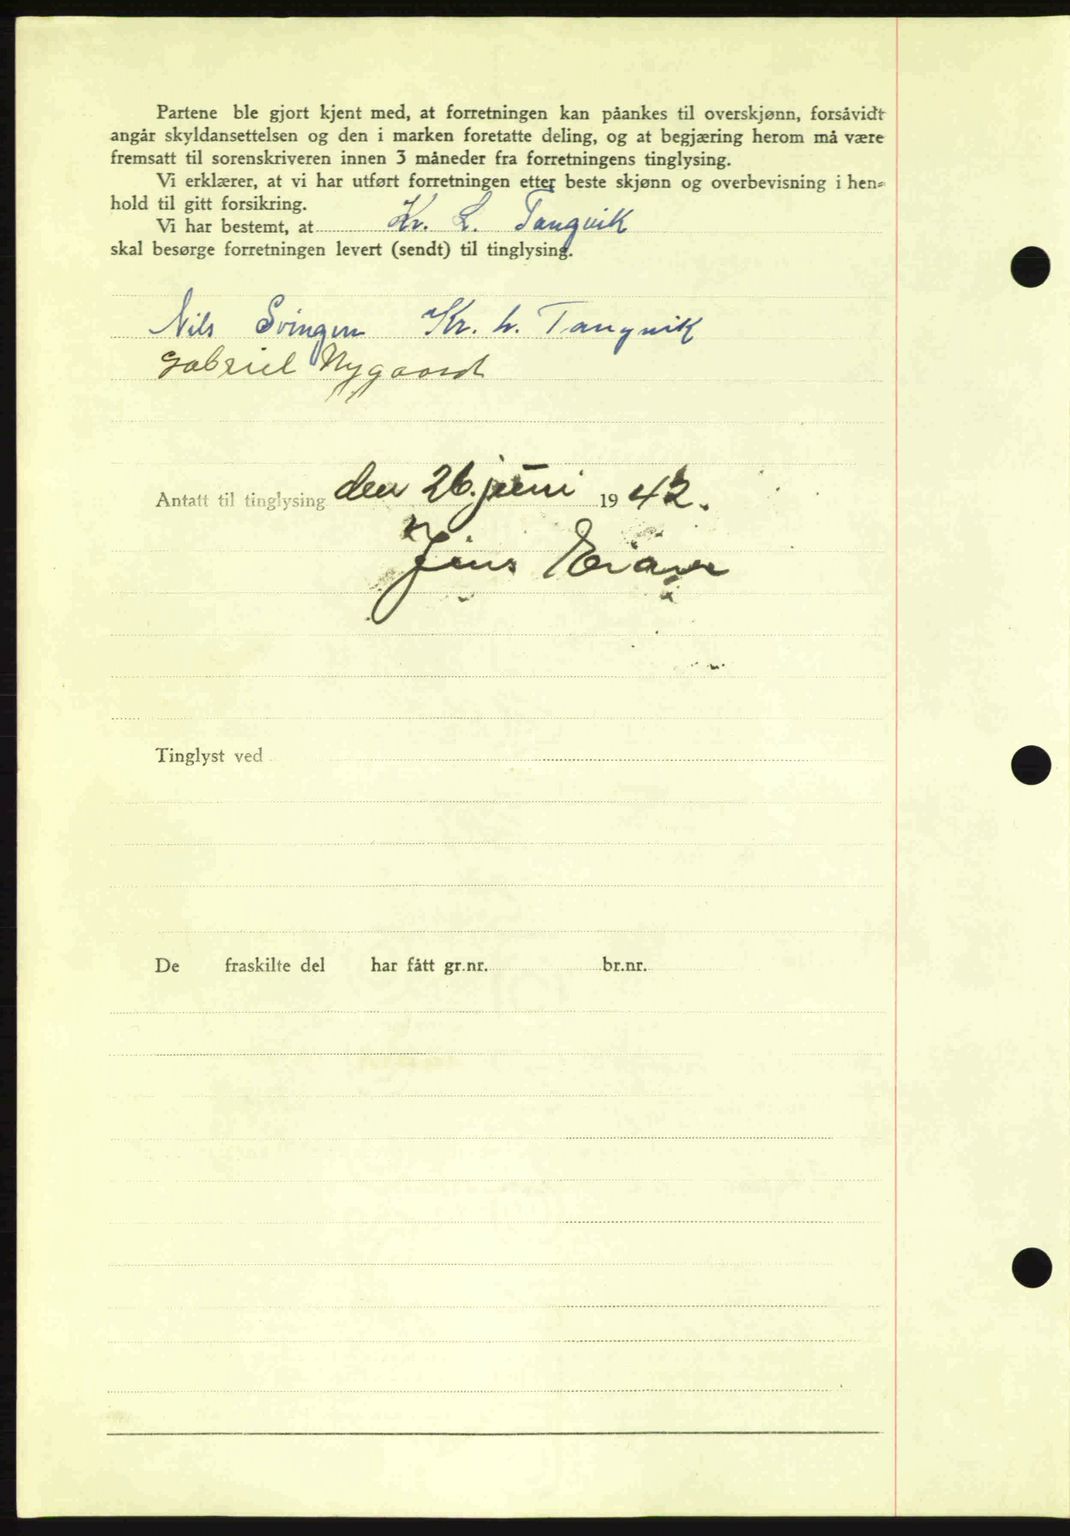 Partene ble gjort kjent med, at forretningen kan påankes til overskjønn, forsåvidt
angår skyldansettelsen og den i marken foretatte deling, og at begjæring herom må være
fremsatt til sorenskriveren innen 3 måneder fra forretningens tinglysing.
Vi erklærer, at vi har utført forretningen etter beste skjønn og overbevisning i hen-
hold til gitt forsikring.
Vi har bestemt, at Kr. L. Tangvik
skal besørge forretningen levert (sendt) til tinglysing.
Nils Svingen Kr. L. Tangvik
Gabriel Nygaard
Antatt til tinglysing den 26. juni 1942.
Jens
Tinglyst ved
De fraskilte del har fått gr.nr. br.nr.